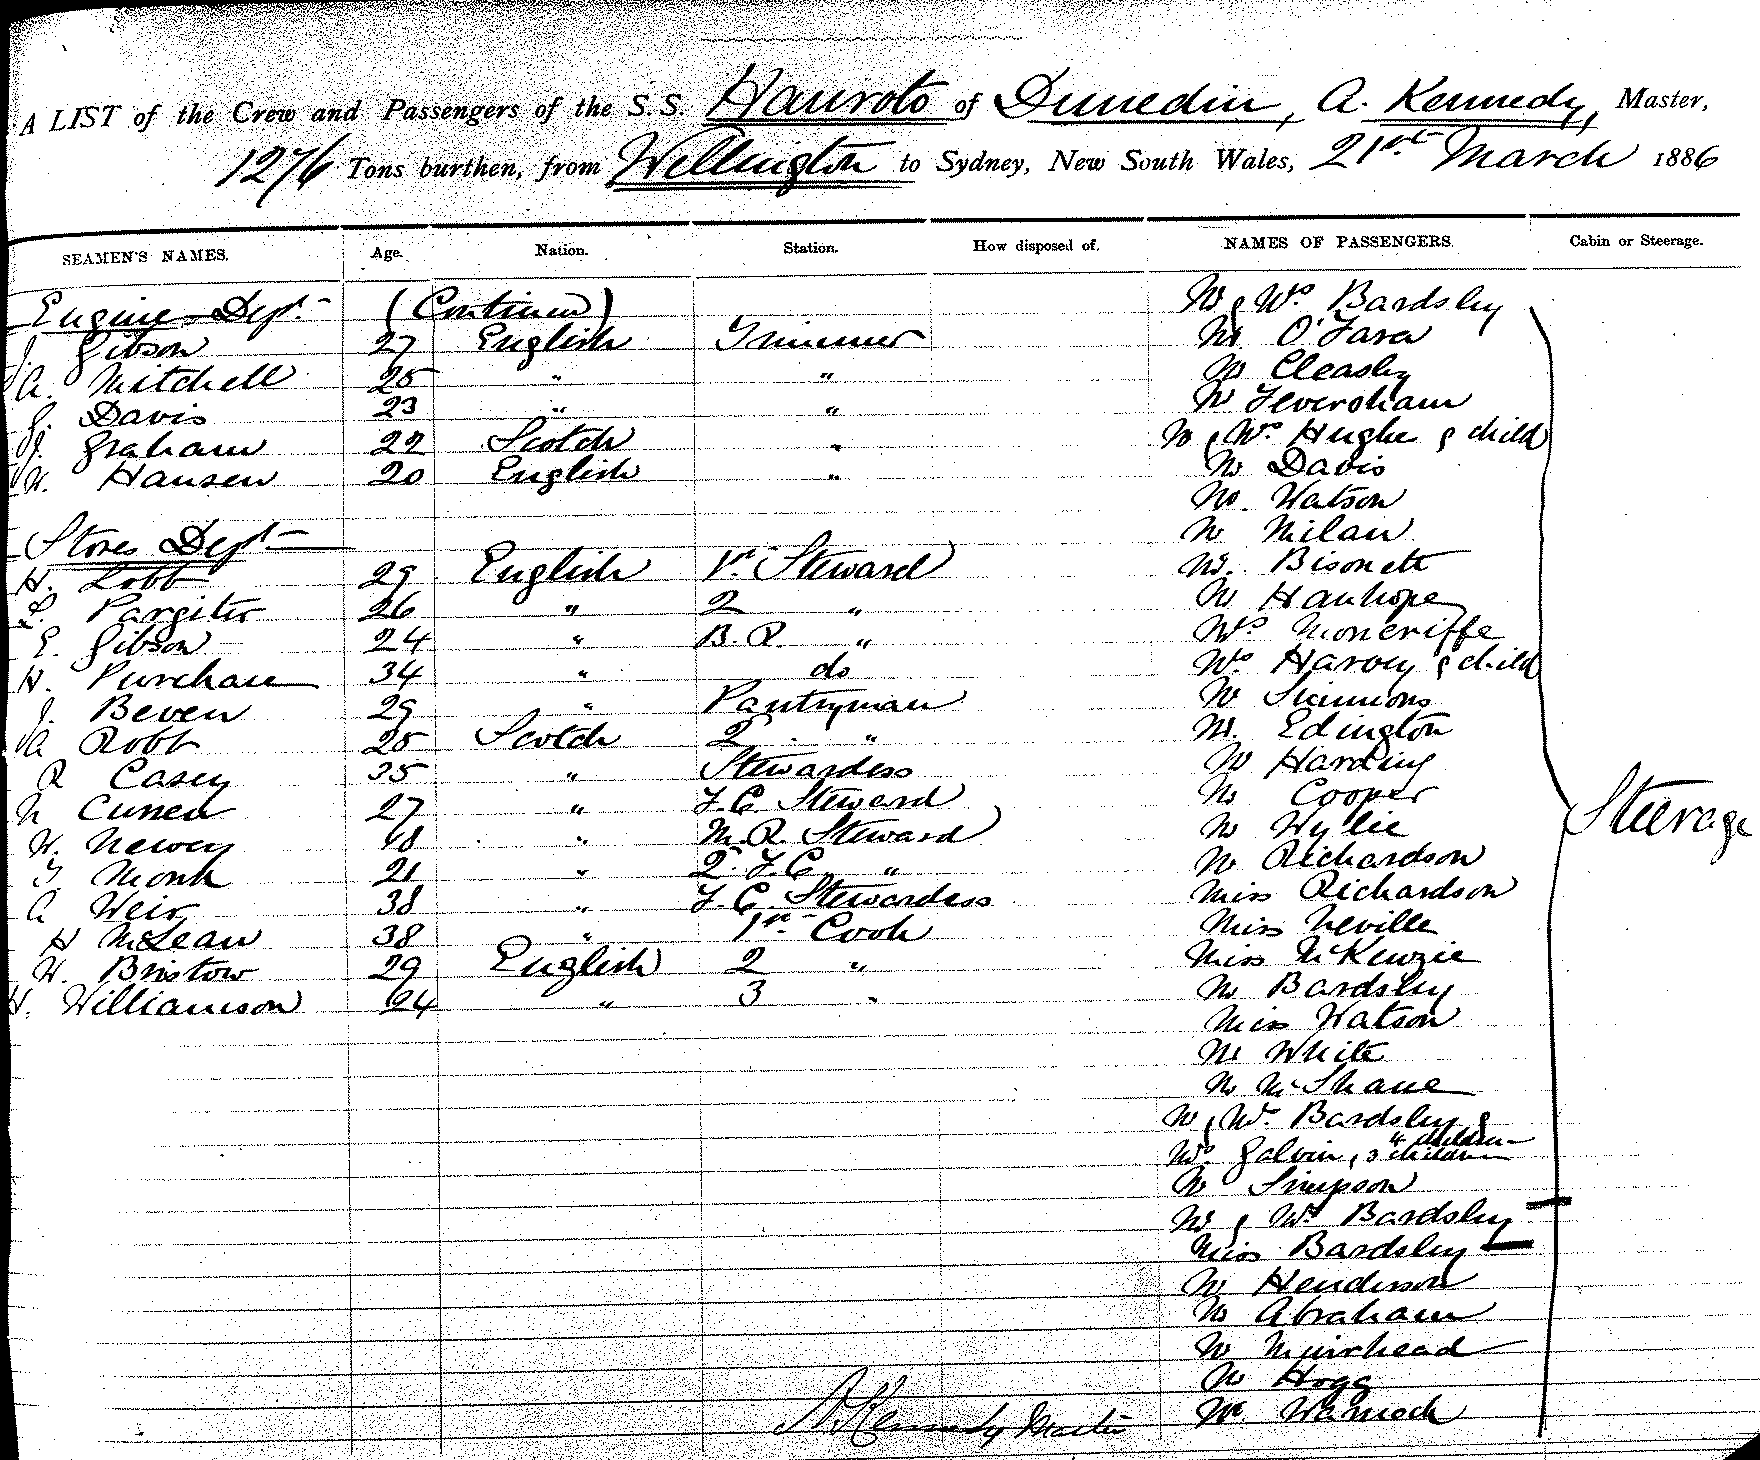 A LIST of the Crew and Passengers of the S.S. Hauroto of Dunedin, A. Kennedy, Master,
1276 Tons burthen, from Wellington to Sydney, New South Wales, 21st March 1886
SEAMEN'S NAMES. Age. Nation. Station. How disposed of. NAMES OF PASSENGERS. Cabin or Steerage.
Engine Dept. (Continued) Mr & Mrs Bardsley
J. Gibson 27 English Trimmer Mr. O'Fara
A. Mitchell 25 " " Mr Cleasby
J. Davis 23 " " Mr Feversham
J. Graham 22 Scotch " Mr & Mrs Hughe & child
Hansen 20 English " Mr Davis
Mr. Watson
Stores Dept Mr Milan
H. Lobb 29 English 1st Steward Mr. Bisonett
L. Pargiter 26 " 2 " Mr Hanhope
E. Gibson 24 " B.R. " Mrs Moncriffe
H. Purchase 34 " do Mrs Harvey & child
J. Beven 29 " Pantryman Mr Simmons
A Robb 25 Scotch 2 " Mr. Edington
R Casey 35 " Stewardess Mr Harding
N Curren 27 " F.C. Steward Mr Cooper Steerage
W. Newey 18 " M.R. Steward Mr Wylie
T. Monk 21 " 2. F.C. " Mr Richardson
A Weir 38 " F.C. Stewardess Miss Richardson
H McLean 38 " 1st Cook Miss Neville
W. Bristow 29 English 2 " Miss McKenzie
H. Williamson 24 " 3 " Mr Bardsley
Miss Watson
Mr White
Mr McShane
Mr & Mrs Bardsley &
4 children
Mrs Galvin, 3 children
Mr Simpson
Mr & Mrs Bardsley
Miss Bardsley
Mr Henderson
Mr Abraham
Mr Muirhead
Mr Hogg
A. Kennedy Master Mr Warnock